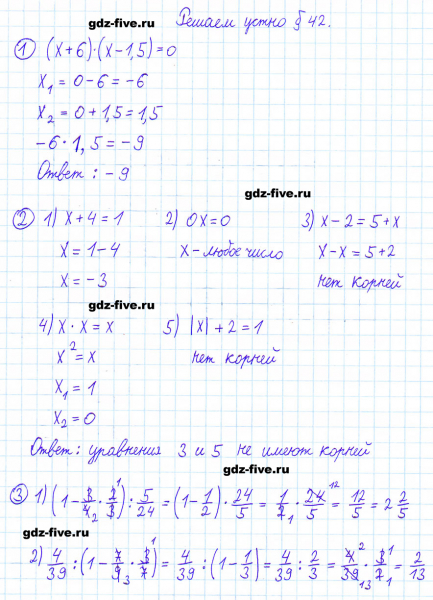 gdz-five.ru
Решаем устно § 42.
① (x+6)·(x-1,5)=0
x₁ = 0-6 = -6
x₂ = 0+1,5 = 1,5
-6·1,5 = -9
Ответ: -9
gdz-five.ru
② 1) x+4=1 2) 0x=0 3) x-2=5+x
x=1-4 x-любое число x-x=5+2
x=-3 нет корней
gdz-five.ru
4) x·x=x 5) |x|+2=1
x²=x нет корней
x₁=1
x₂=0
Ответ: уравнения 3 и 5 не имеют корней
gdz-five.ru
③ 1) (1-3/4·2/3):5/24=(1-1/2)·24/5=1/2·24/5=12/5=2 2/5
gdz-five.ru
2) 4/39:(1-7/9·3/7)=4/39:(1-1/3)=4/39:2/3=4/39·3/2=2/13